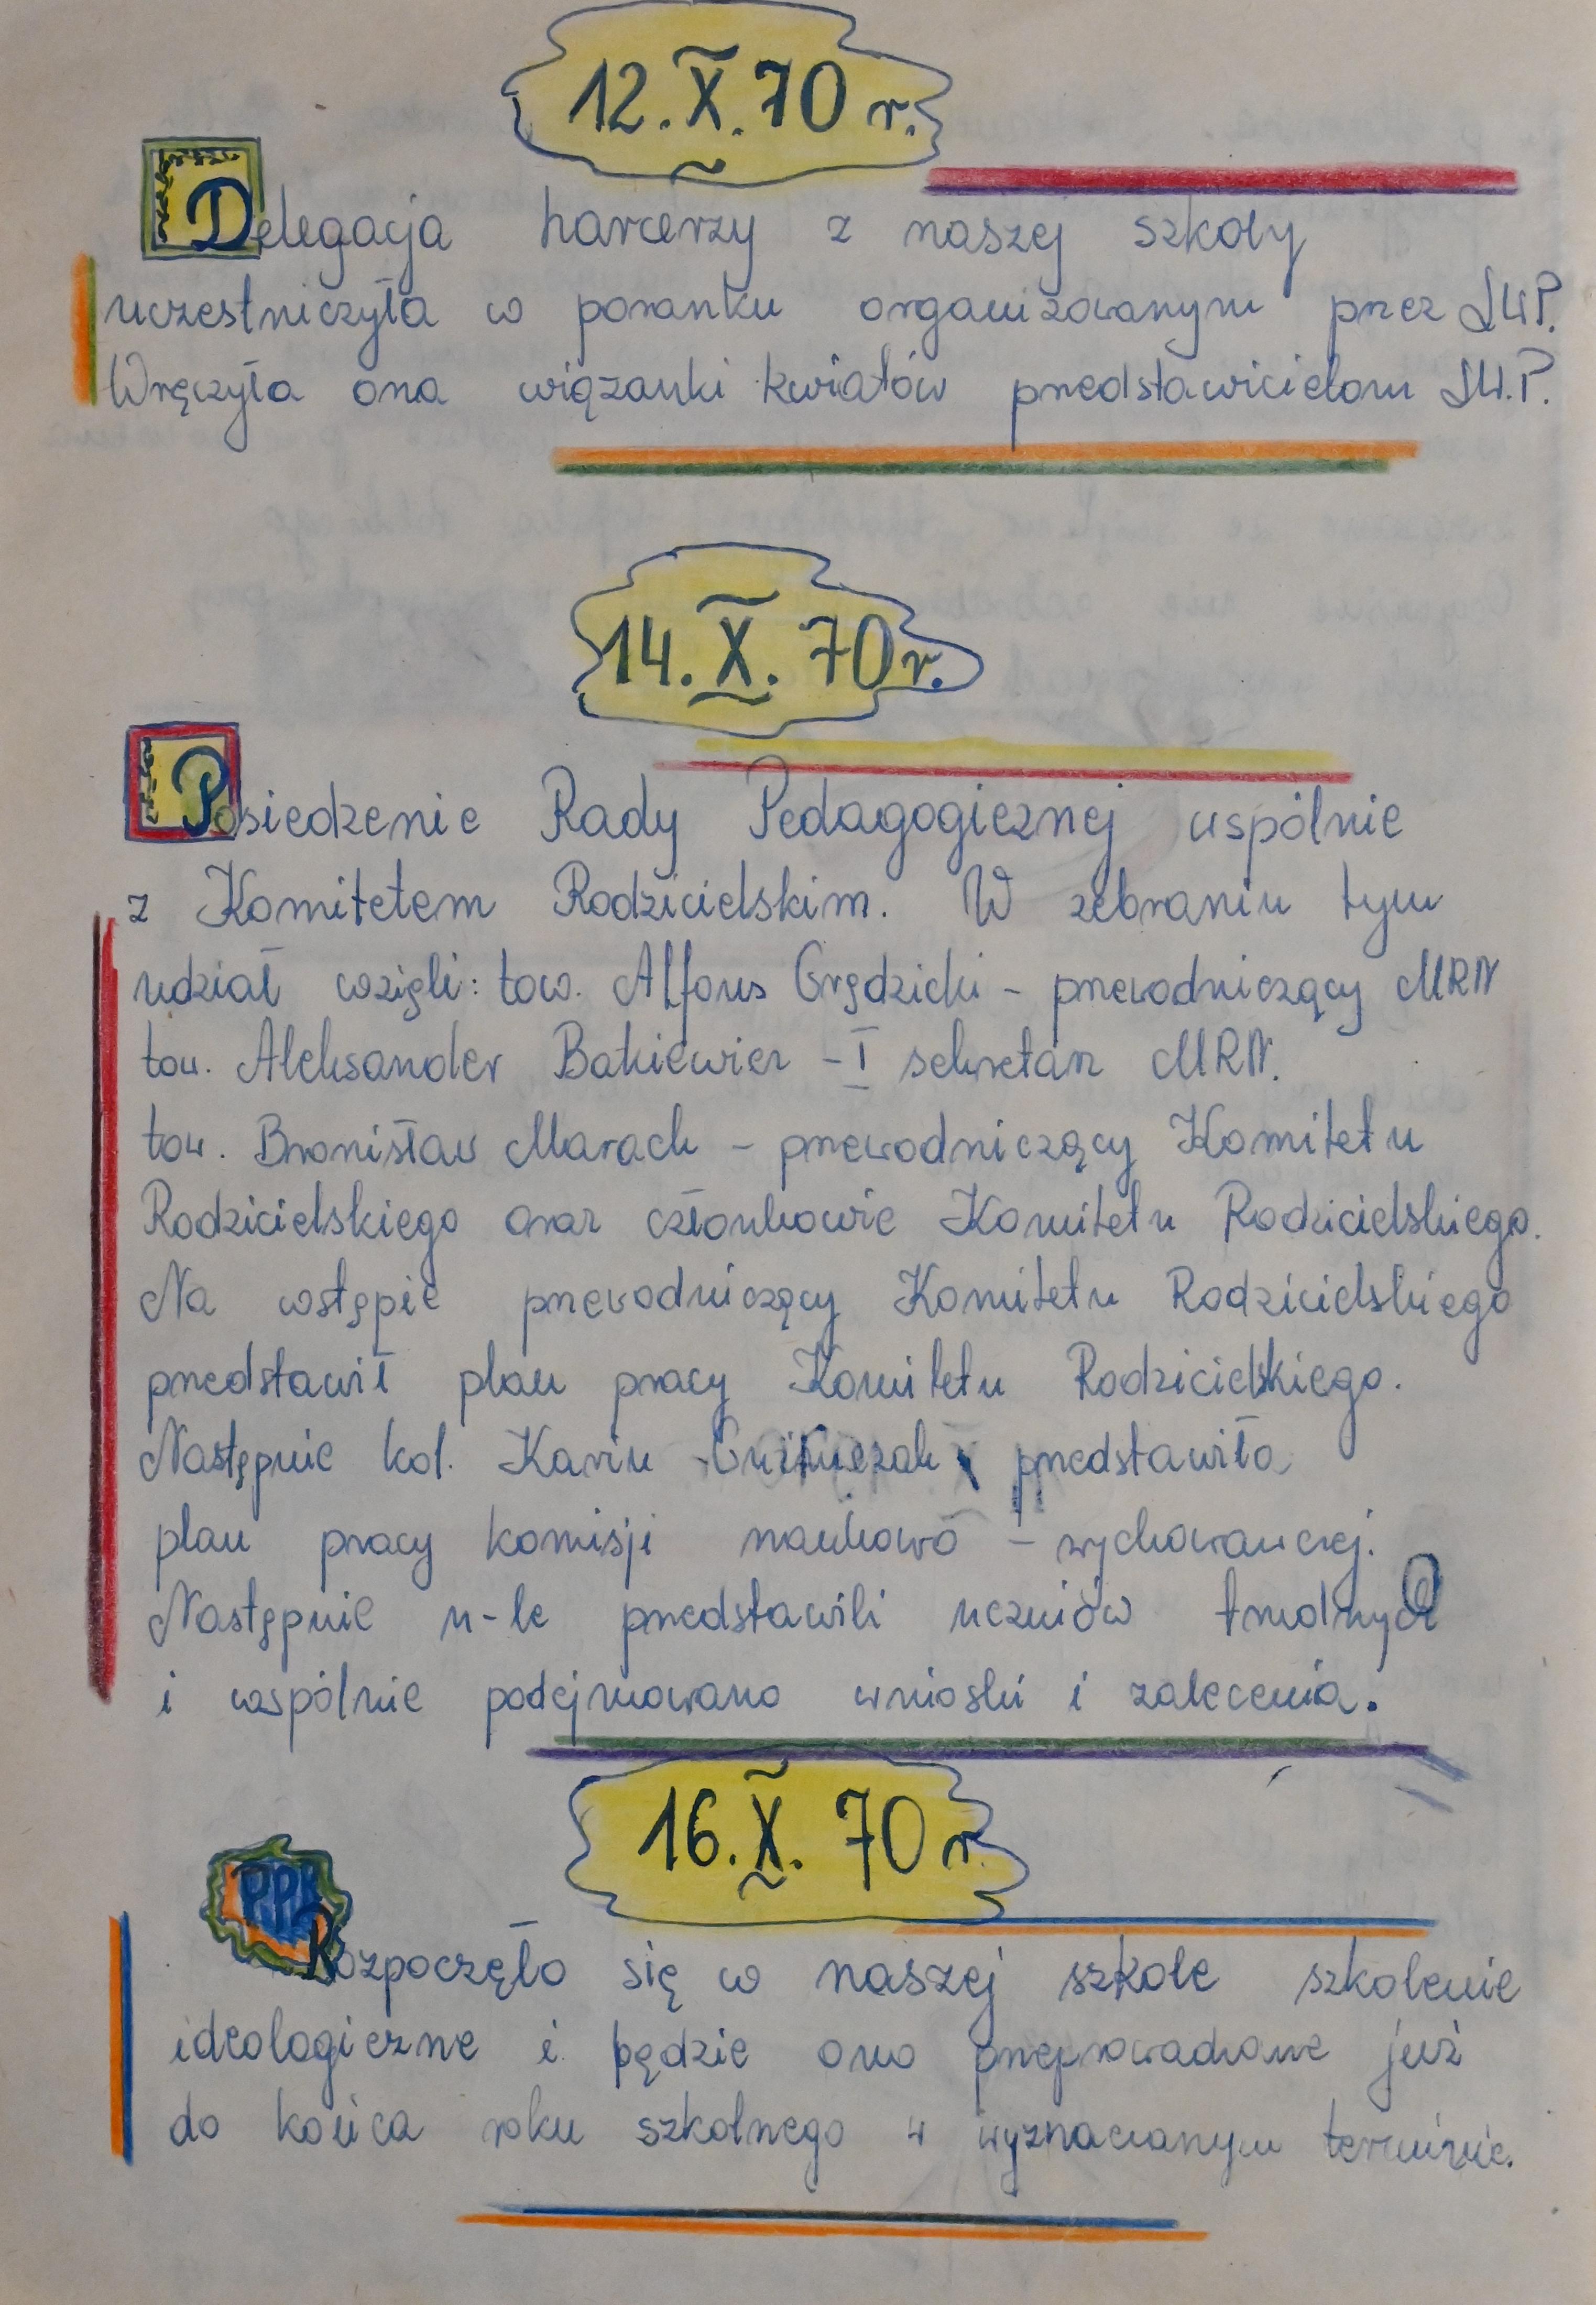 12.X.70 r.
Delegacja harcerzy z naszej szkoły
uczestniczyła w poranku organizowanym przez LWP.
Wręczyła ona wiązanki kwiatów przedstawicielom LW.P.
14.X.70 r.
Posiedzenie Rady Pedagogicznej wspólnie
z Komitetem Rodzicielskim. W zebraniu tym
udział wzięli: tow. Alfons Grędzicki - przewodniczący MRN
tow. Aleksander Bakiewicz - I sekretarz MRN.
tow. Bronisław Marach - przewodniczący Komitetu
Rodzicielskiego oraz członkowie Komitetu Rodzicielskiego.
Na wstępie przewodniczący Komitetu Rodzicielskiego
przedstawił plan pracy Komitetu Rodzicielskiego.
Następnie kol. przedstawiła
plan pracy komisji naukowo - wychowawczej.
Następnie n-le przedstawili uczniów trudnych
i wspólnie podejmowano wnioski i zalecenia.
16.X.70 r.
Rozpoczęło się w naszej szkole szkolenie
ideologiczne i będzie ono przeprowadzone już
do końca roku szkolnego w wyznaczanym terminie.